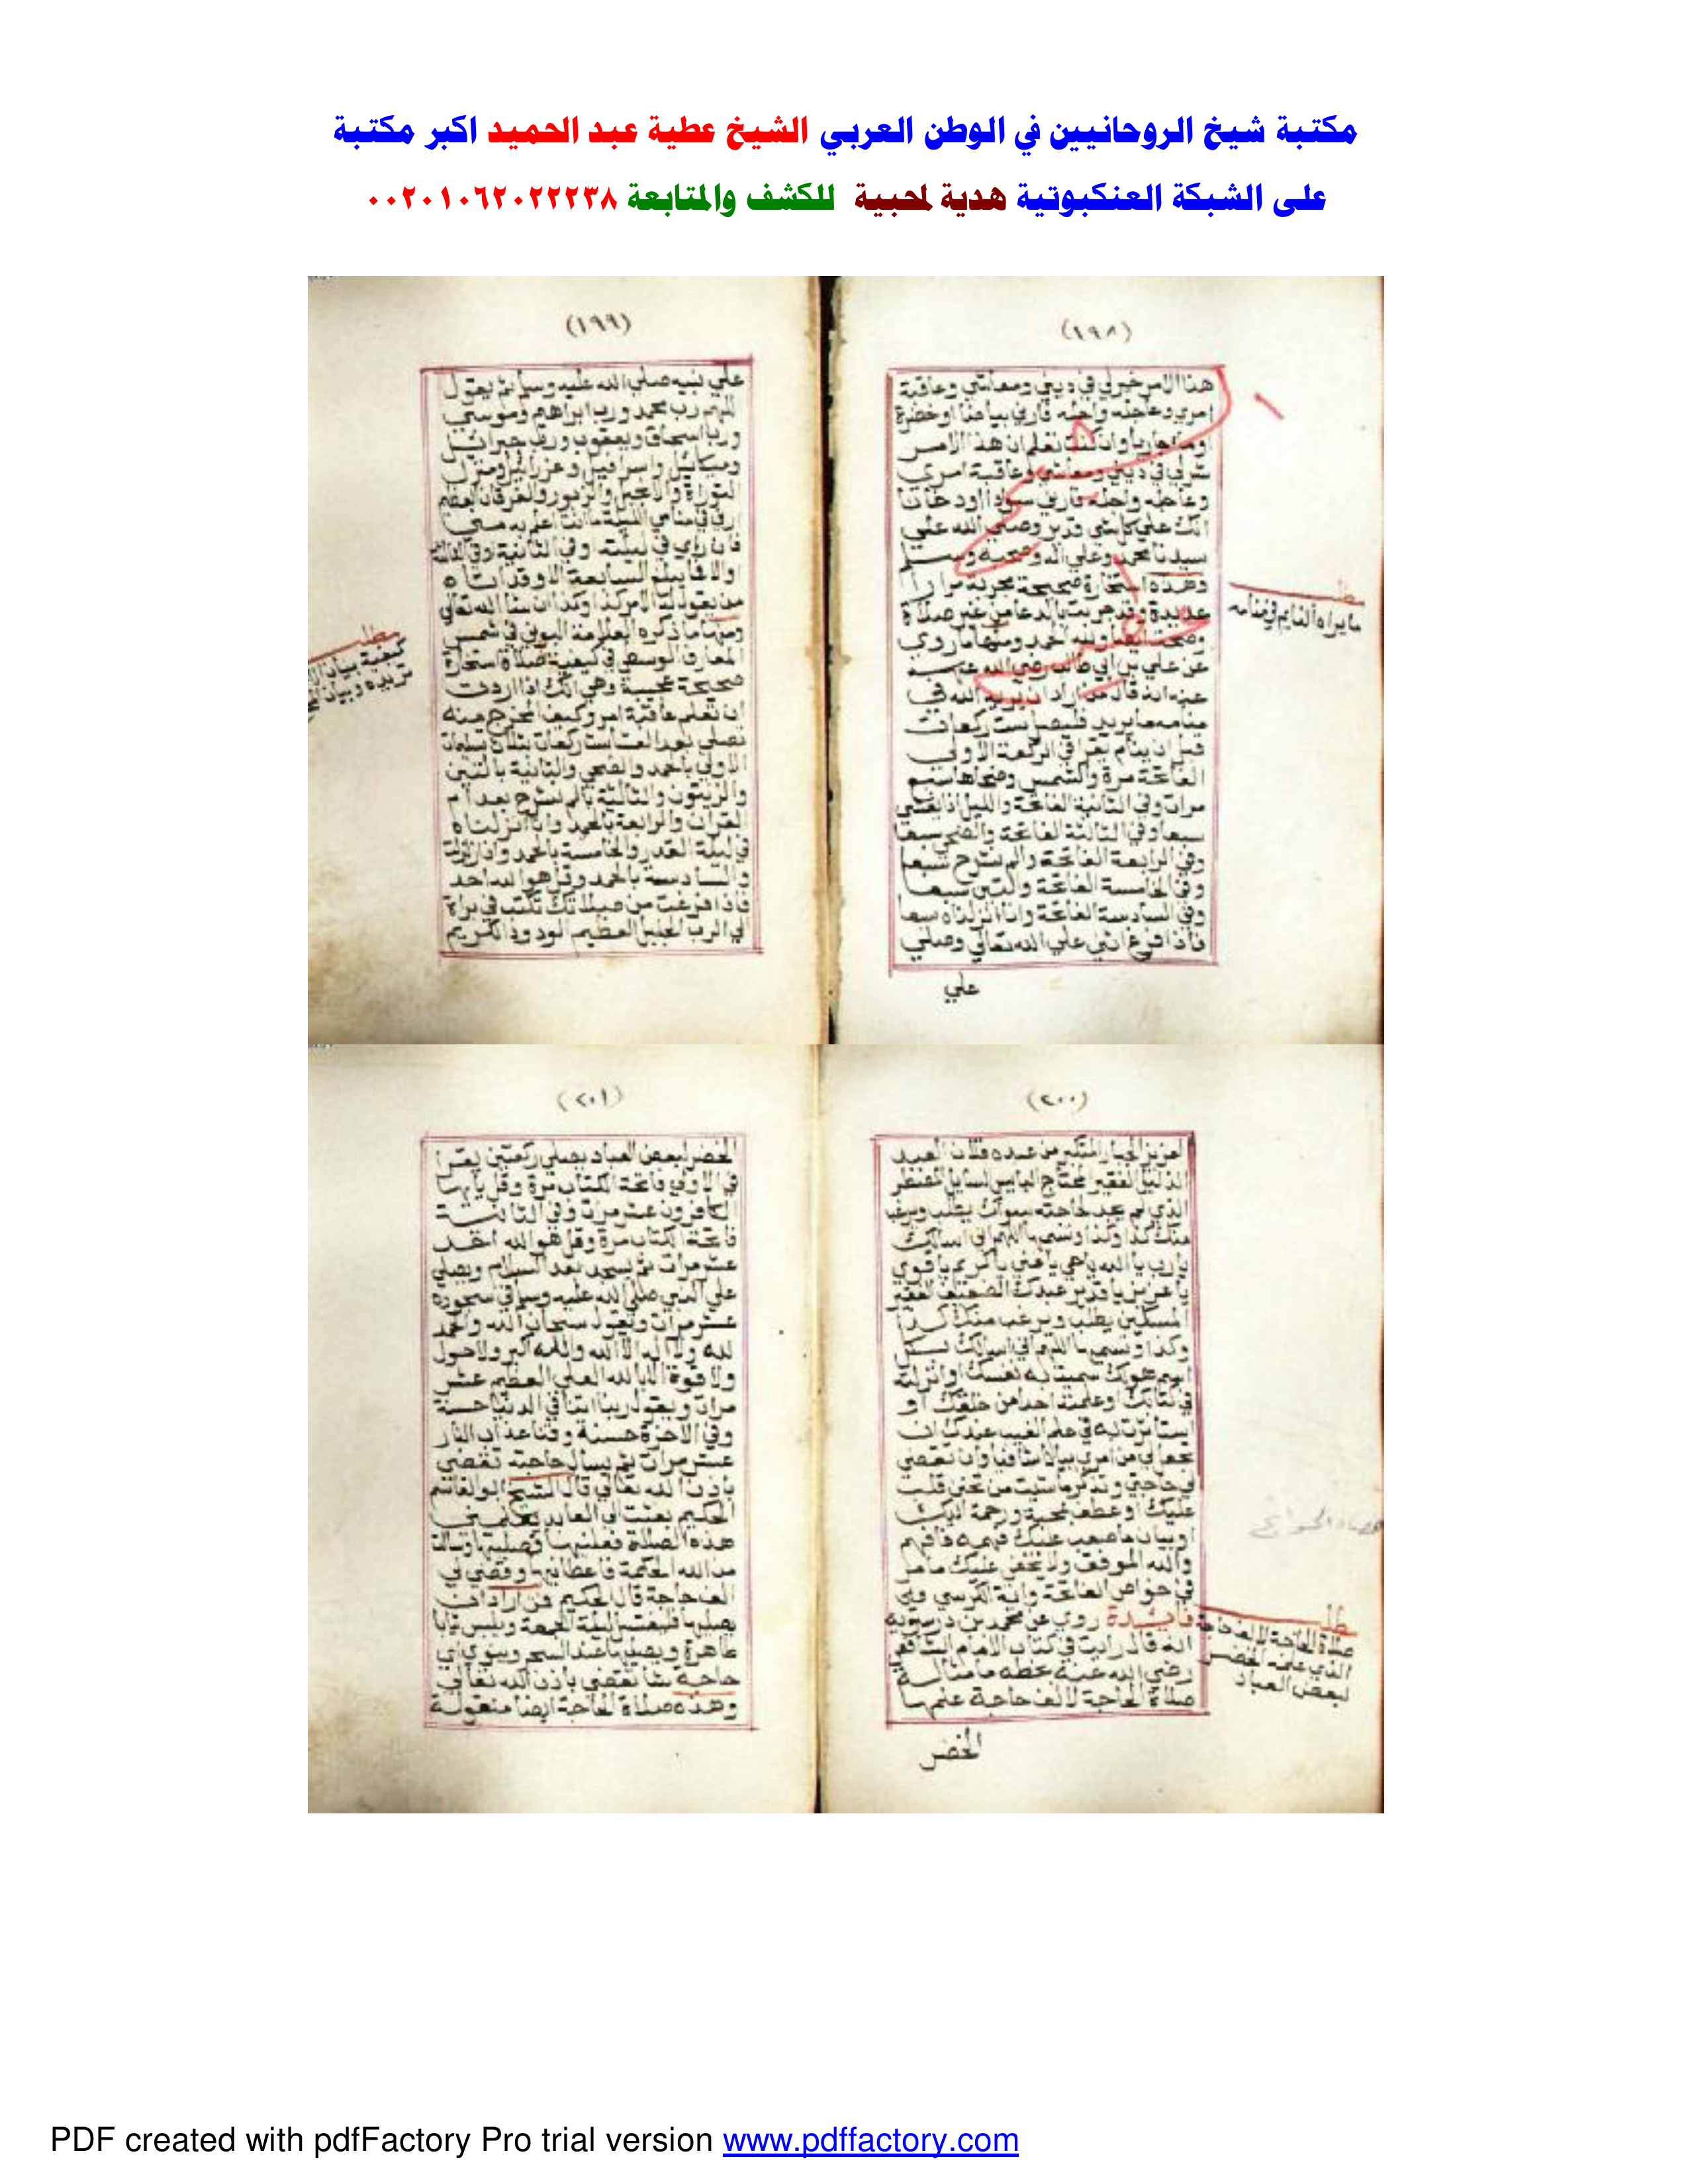 مكتبة شيخ الروحانيين في الوطن العربي الشيخ عطية عبد الحميد اكبر مكتبة
على الشبكة العنكبوتية هدية لمحبية للكشف والمتابعة ٠٠٢٠١٠٦٢٠٢٢٢٣٨
(١٩٨)
هذا الامر خير لي في ديني ومعاشي وعاقبة
امري وعاجله واجله فارني بياضا او خضرة
او ماء جاريا وان كنت تعلم ان هذا الامر
شر لي في ديني ومعاشي وعاقبة امري
وعاجله واجله فارني سوادا او دخانا
انك على كل شي قدير وصلى الله علي
سيدنا محمد وعلي اله وصحبه وسلم
وهذه استخارة صحيحة مجربة مرارا
عديدة وقد جربت بالدعا من غير صلاة
وصحت ايضا ولله الحمد ومنها ما روي
عن علي بن ابي طالب رضي الله
عنه انه قال من اراد ان يريه الله في
منامه ما يريد فليصل ست ركعات
قبل ان ينام يقرا في الركعة الاولى
الفاتحة مرة والشمس وضحاها سبع
مرات وفي الثانية الفاتحة والليل اذا يغشي
سبعا وفي الثالثة الفاتحة والضحي سبعا
وفي الرابعة الفاتحة والم نشرح سبعا
وفي الخامسة الفاتحة والتين سبعا
وفي السادسة الفاتحة وانا انزلناه سبعا
فاذا فرغ اثني علي الله تعالي وصلي
علي
ما يراه النايم في منامه
(١٩٩)
علي نبيه صلي الله عليه وسلم ثم يقول
اللهم رب محمد ورب ابراهيم وموسي
ورب اسحاق ويعقوب ورب جبرائيل
وميكائيل واسرافيل وعزرائيل ومنزل
التوراة والانجيل والزبور والفرقان العظيم
ارني في منامي الليلة ما انت اعلم به مني
فان راي في ليلته وفي الثانية وفي الثالثة
والا فما يبلغ السابعة الا وقد اتاه
من يقول له الامر كذا وكذا ان شا الله تعالي
ومنها ما ذكره العلامة البوني في شمس
المعارف الوسطي في كيفية صلاة استخارة
صحيحة عجيبة وهي انك اذا اردت
ان تعلم عاقبة امر وكيف المخرج منه
تصلي بعد العشا ست ركعات بثلاث تسليمات
الاولي بالحمد والضحي والثانية بالتين
والزيتون والثالثة بالم نشرح بعد ام
القران والرابعة بالحمد وانا انزلناه
في ليلة القدر والخامسة بالحمد واذا زلزلت
والسادسة بالحمد وقل هو الله احد
فاذا فرغت من صلاتك تكتب في براة
الي الرب الجليل العظيم الودود الكريم
مطلب
كيفية بيان
تريده وبيان
(٢٠٠)
العزيز الجبار المتكبر من عبده فلان العبد
الذليل الفقير المحتاج البايس السايل المضطر
الذي لم يجد لحاجته سواك يطلب ويرغب
منك كذا وكذا وتسمي ما اللهم اني اسالك
يارب يا الله يا حي يا غني يا كريم يا قوي
يا عزيز يا قدير عبدك الضعيف الفقير
المسكين يطلب ويرغب منك كذا
وكذا وتسمي ما اللهم اني اسالك بكل
اسم هو لك سميت به نفسك او انزلته
في كتابك او علمته احدا من خلقك او
استاثرت به في علم الغيب عندك ان
تجعل لي من امري بيانا شافيا وان تقضي
لي حاجتي وتذكر ما شيت من تحنن قلب
عليك او عطف محبة ورحمة اليك
او بيان ما صعب عليك فهمه فافهم
والله الموفق ولا يخفى عليك ما مر
في خواص الفاتحة واية الكرسي
فايدة روي عن محمد بن درستويه
انه قال رايت في كتاب الامام الشافعي
رضي الله عنه بخطه ما مثاله
صلاة الحاجة لالف حاجة علمها
الخضر
صلاة الحاجة لالف حاجة
الذي علمه الخضر
لبعض العباد
(٢٠١)
الخضر لبعض العباد يصلي ركعتين يقرا
في الاولي فاتحة الكتاب مرة وقل يا ايها
الكافرون عشر مرات وفي الثانية
فاتحة الكتاب مرة وقل هو الله احد
عشر مرات ثم يسجد بعد السلام ويصلي
علي النبي صلي الله عليه وسلم في سجوده
عشر مرات ويقول سبحان الله والحمد
لله ولا اله الا الله والله اكبر ولا حول
ولا قوة الا بالله العلي العظيم عشر
مرات ويقول ربنا اتنا في الدنيا حسنة
وفي الاخرة حسنة وقنا عذاب النار
عشر مرات ثم يسال حاجته تقضي
باذن الله تعالي قال الشيخ ابو القاسم
الحكيم بعثت الي العابد يعلمني
هذه الصلاة فعلمنيها فصليتها وسالت
من الله الحكمة فاعطانيها وقضي لي
الف حاجة قال الحكيم من اراد ان
يصليها فليغتسل ليلة الجمعة ويلبس ثيابا
طاهرة ويصليها عند السحر وينوي اي
حاجة شا تقضي باذن الله تعالي
وهذه صلاة الحاجة ايضا منقولة
PDF created with pdfFactory Pro trial version www.pdffactory.com